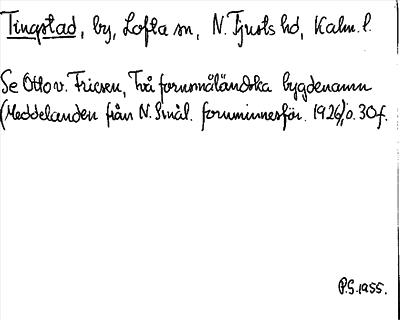 Tingstad, by, Lofta sn, N. Tjusts hd, Kalm. l.
Se Otto v. Friesen, Två fornsmåländska bygdenamn
(Meddelanden från N. Smål. fornminnesför. 1926), s. 30 f.
P.S. 1955.